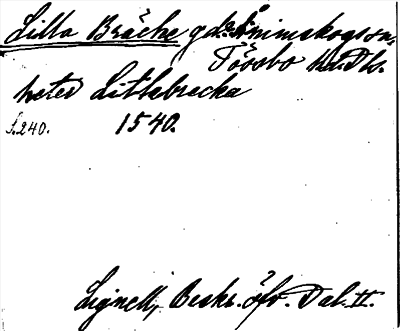 Lilla Bräcke g d. Ånimskogs sn.
Tössbo hd. Dls.
heter Litlabrecka
s. 240. 1540.
Lignell, Beskr. öfv. Dal. II.